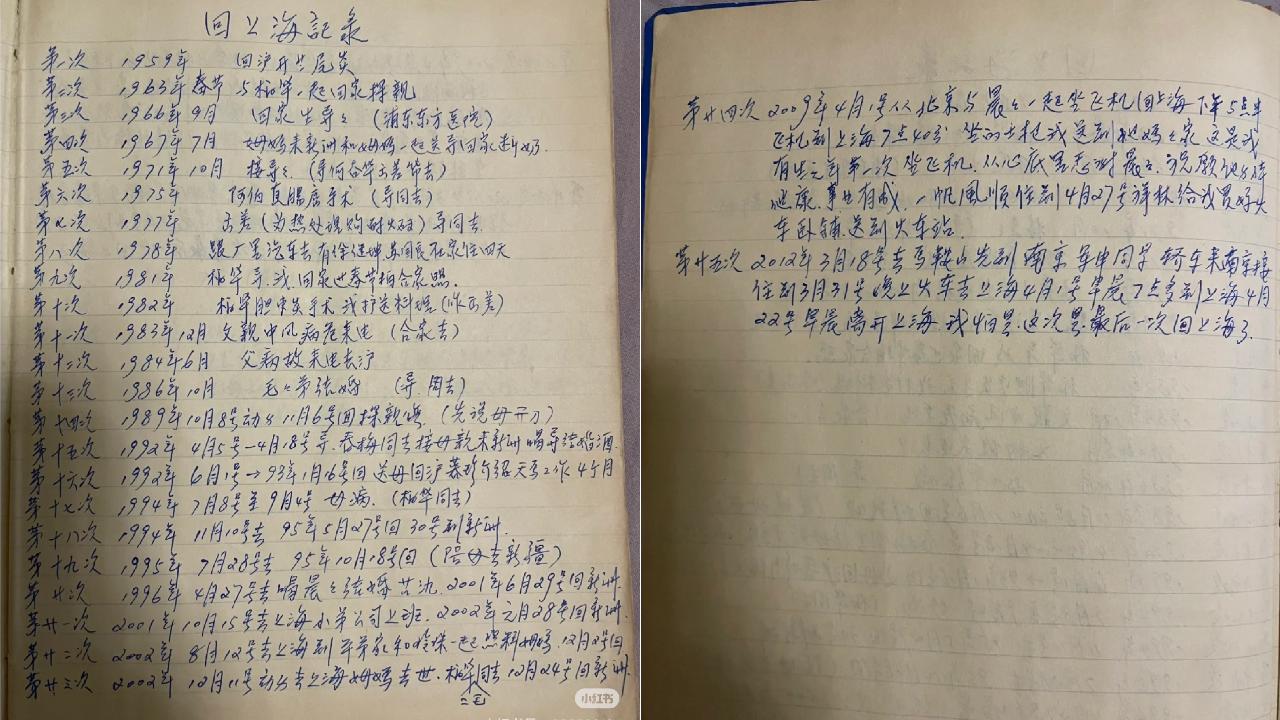 回上海記录
第一次 1959年 回沪开兰尾炎
第二次 1963年春节 与柏华一起回家探親
第三次 1966年9月 回家生导导(浦东东方医院)
第四次 1967年7月 姆妈来新洲和姆妈一起关导回家断奶
第五次 1971年10月 接导导(导何合华出差带去)
第六次 1975年 阿伯直腸庙手术(导同去)
第七次 1977年 出差(为热处理购耐火砖)导同去
第八次 1978年 跟厂里汽车去有徐进坤 在家住四天
第九次 1981年 柏华导,我回家过春节拍合家照.
第十次 1982年 柏华胆束灵手术我护送料理(作出差)
第十一次 1983年12月 父親中风病危来电(合家去)
第十二次 1984年6月 父病故来电去沪
第十三次 1986年10月 毛毛弟張婚 (导 周去)
第十四次 1989年10月8号动身11月6号回探親 (先说母开刀)
第十五次 1992年 4月5号—4月18号导.春梅同去接母親来新洲喝导结婚酒
第十六次 1992年 6月1号→93年1月16号回送母回沪慕珍介绍 工作4个月
第十七次 1994年 7月8号至9月4号 母病.(柏华同去)
第十八次 1994年 11月10号去 95年5月27号回30号到新洲.
第十九次 1995年 7月28号去 95年10月18号回(陪母去新疆)
第廿次 1996年 4月27号去喝晨晨結婚 酒.2001年6月29号回新洲
第廿一次 2001年10月15号去上海小弟公司上班.2002年元月28号回新洲
第廿二次 2002年8月12号去上海到平弟家和 珠一起照料姆妈 12月2号回
第廿三次 2002年12月11号动身去上海姆妈去世.柏华同去12月24号回新洲
二毛
小红书
第廿四次 2009年4月1号从北京与晨晨一起坐飞机回上海下午5点半
飞机到上海7点40分 坐的士把我送到 妈妈家这是我
有生之年第一次坐飞机.从心底里感谢晨晨.祝愿他身体
健康.事业有成.一帆風顺住到4月27号祥林给我買好火
车卧铺送到火车站.
第廿五次 2012年3月18号去马鞍山先到南京 申同学轿车来南京接
住到3月31号晚上火车去上海4月1号早晨7点多到上海4月
22号早晨离开上海.我怕是这次是最后一次回上海了.